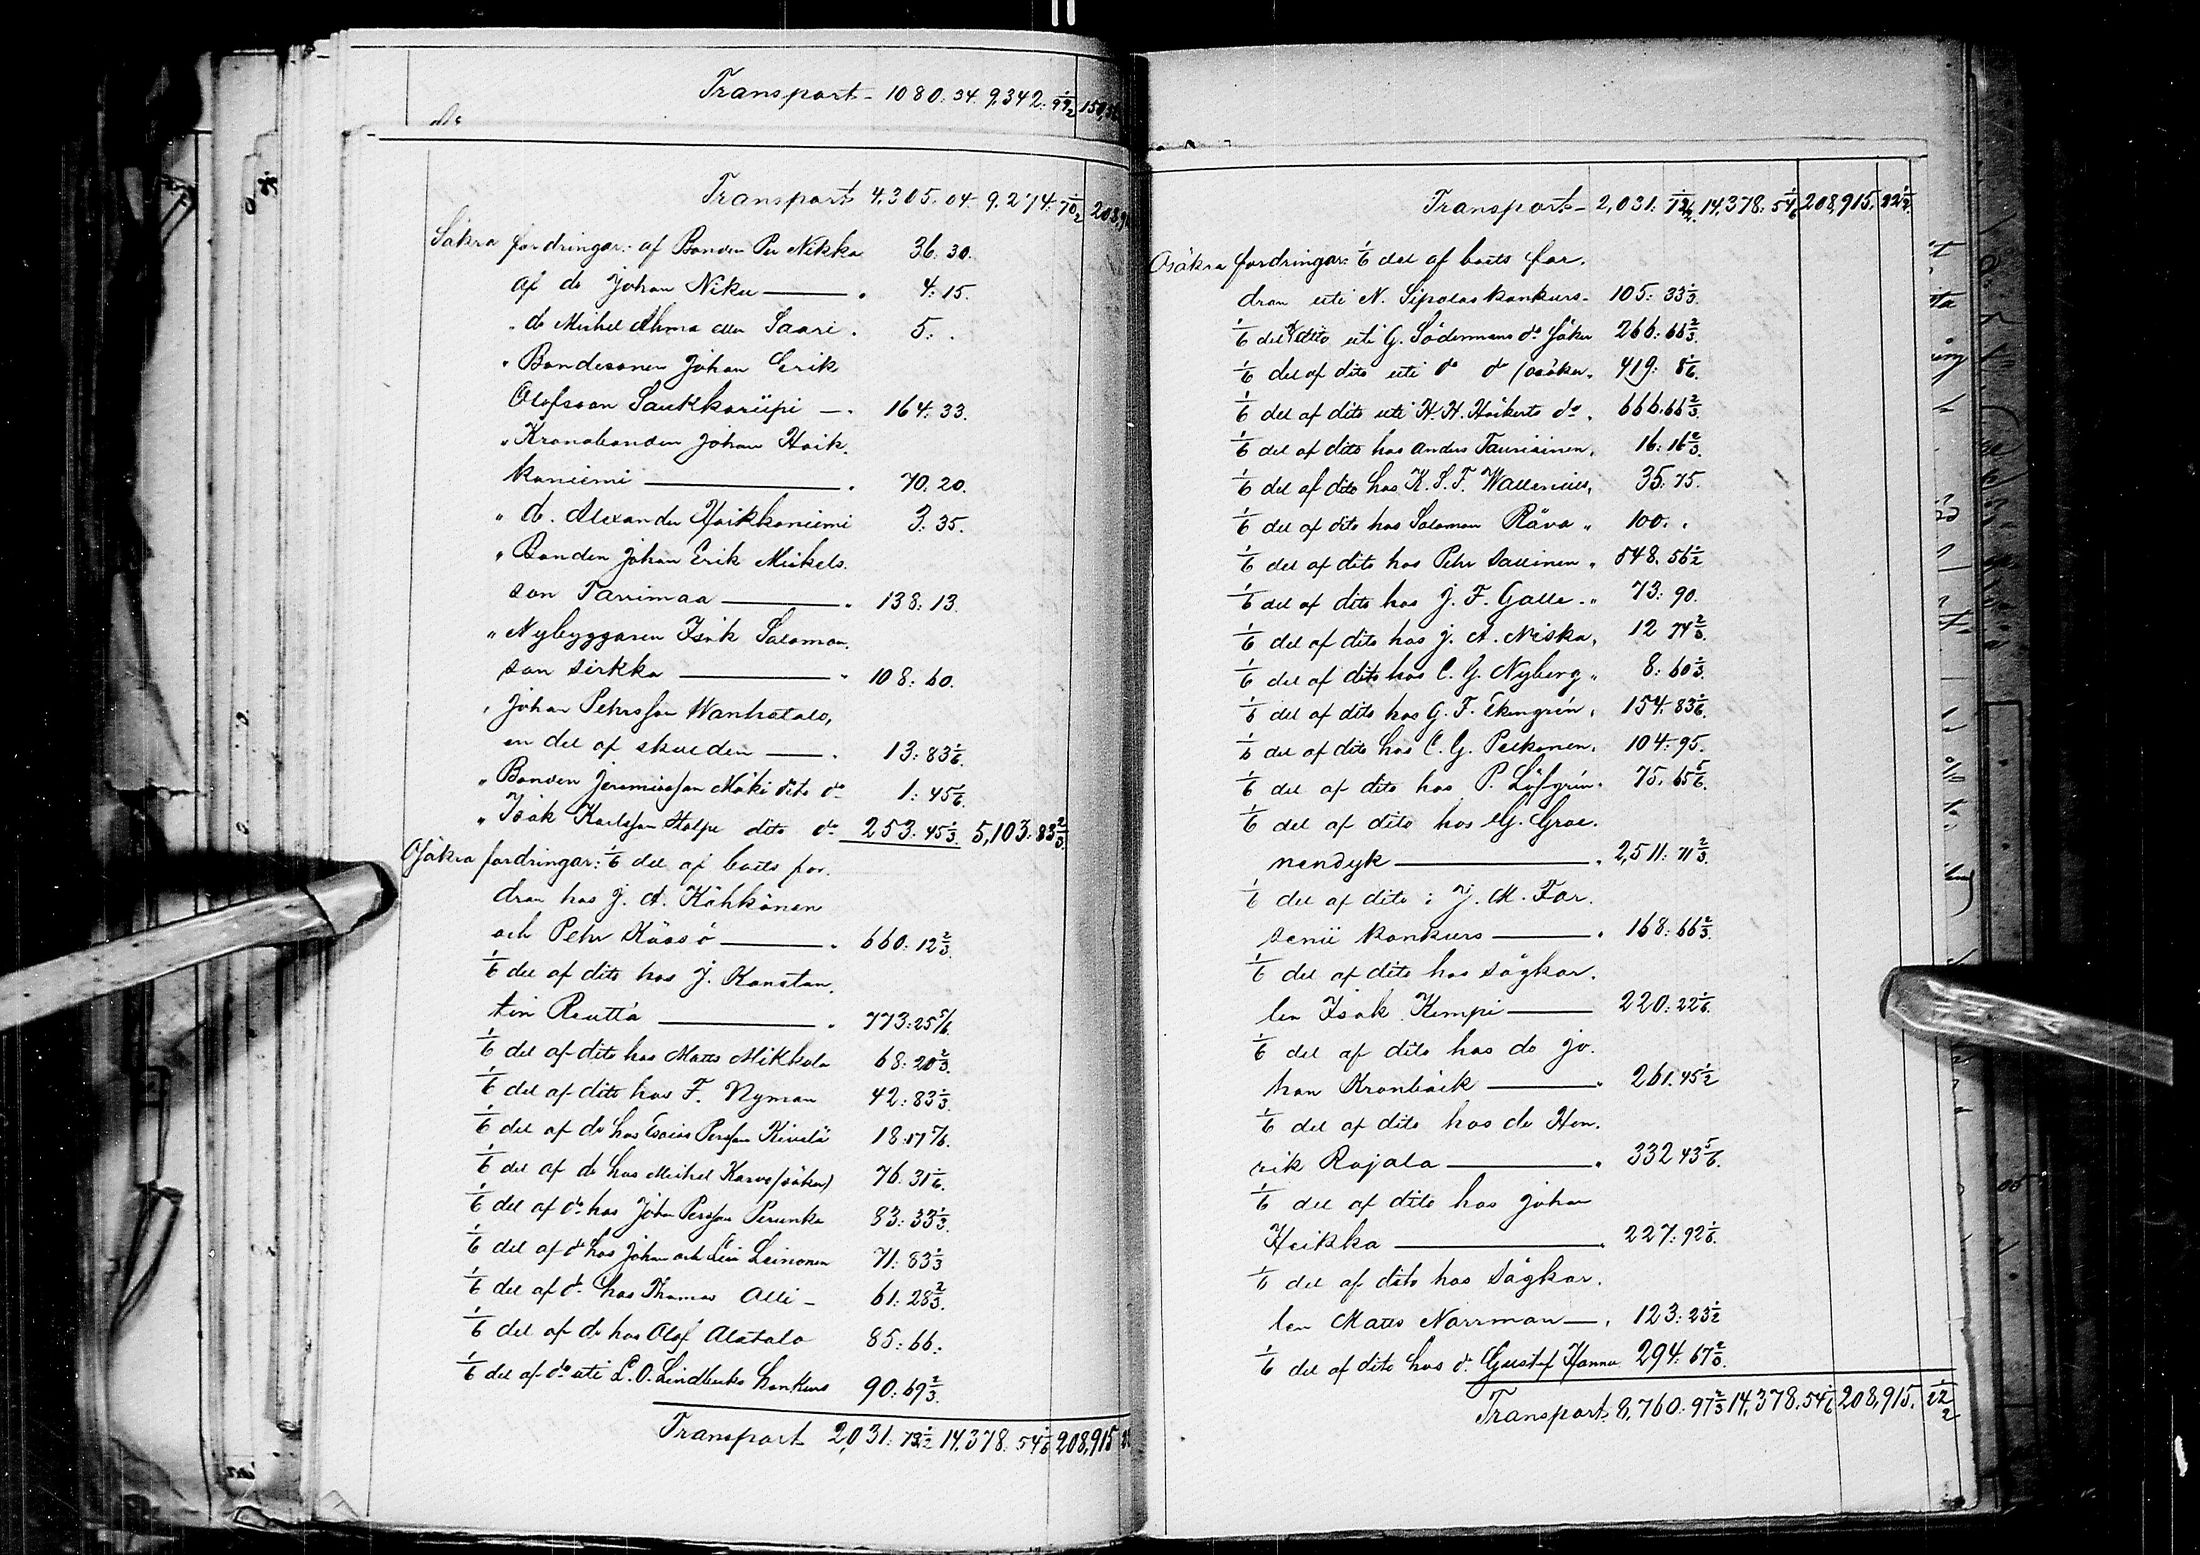 Transport 1080. 34. 9,342. 99 1/2 150,
Transport 4,305. 04. 9,274. 70 1/2 208,9
Säkra fordringar: af Bonden Per Nikka 36. 30.
af do Johan Niku — " 4. 15.
" do Michel Ahma eller Saari " 5. "
" Bondesonen Johan Erik
Olofsson Saukkoriipi — " 164. 33.
" Kronobonden Johan Haik-
kaniemi — " 70. 20.
" do. Alexander Haikkaniemi 3. 35.
" Bonden Johan Erik Mickels-
son Tarrimaa — " 138. 13.
" Nybyggaren Isak Salomon-
son Sirkka — " 108. 60.
" Johan Pehrsson Wanhatalo,
en del af skulden — " 13: 83 1/6.
" Bonden Jeremiasson Mäki dito do 1: 45 5/6.
" Isak Karlsson Stolpe dito do 253. 45 1/3. 5,103. 83 2/3.
Osäkra fordringar: 1/6 del af boets for-
dran hos J. A. Kähkönen
och Pehr Kääsö — " 660: 12 2/3.
1/6 del af dito hos J. Konstan-
tin Reutta — " 773: 25 5/6.
1/6 del af dito hos Matts Mikkola 68: 20 2/3.
1/6 del af dito hos F. Nyman 42: 83 1/3.
1/6 del af do hos Esaias Persson Kivelä 18: 51 5/6.
1/6 del af do hos Michel Karvo (säker) 76. 31 1/6.
1/6 del af do hos Johan Persson Perunka 83: 33 1/3.
1/6 del af do hos Johan och Leinonen 71: 83 1/3
1/6 del af do hos Thomas Alli — 61: 28 2/3.
1/6 del af do hos Olof Alatalo 85: 66.
1/6 del af do uti L. O. Lindbecks konkurs 90: 69 2/3.
Transport 2,031. 72 1/2 14,378. 54 1/6 208,915
Transport — 2,031. 72 1/2. 14,378. 54 1/6 208,915. 22 1/2.
Osäkra fordringar: 1/6 del af boets for-
dran uti N. Sipolas konkurs 105: 33 1/3.
1/6 del af dito uti G. Södermans do säker 266: 66 2/3.
1/6 del af dito uti do do (osäker 419: 8 1/6.
1/6 del af dito uti H. H. Heikerts do " 666. 66 2/3.
1/6 del af dito hos Anders Tauriainen " 16: 16 2/3.
1/6 del af dito hos K. S. F. Wallenius " 35: 75.
1/6 del af dito hos Salomon Räva " 100. "
1/6 del af dito hos Pehr Sallinen " 548. 56 1/2
1/6 del af dito hos J. F. Galle " 73: 90.
1/6 del af dito hos J. A. Niska " 12 74 2/3.
1/6 del af dito hos C. G. Nyberg " 8: 60 2/3.
1/6 del af dito hos G. F. Ekengrén " 154. 83 1/6.
1/6 del af dito hos C. G. Pelkonen " 104. 95.
1/6 del af dito hos P. Löfgrén " 75. 65 5/6.
1/6 del af dito hos G. Groe-
nendyk — " 2,511: 71 2/3.
1/6 del af dito i J. M. For-
senii konkurs — " 168: 66 2/3.
1/6 del af dito hos sågkar-
len Isak Kempi — 220: 22 1/6.
1/6 del af dito hos do Jo-
han Kronbäck — " 261. 45 1/2
1/6 del af dito hos do Hen-
rik Rajala — " 332 43 5/6.
1/6 del af dito hos Johan
Heikka — 227: 92 1/6.
1/6 del af dito hos sågkar-
len Matts Norrman — " 123: 23 1/2
1/6 del af dito hos do Gustaf Hannu 294: 67 2/3.
Transport: 8,760: 97 2/3 14,378. 54 1/6 208,915. 22 1/2